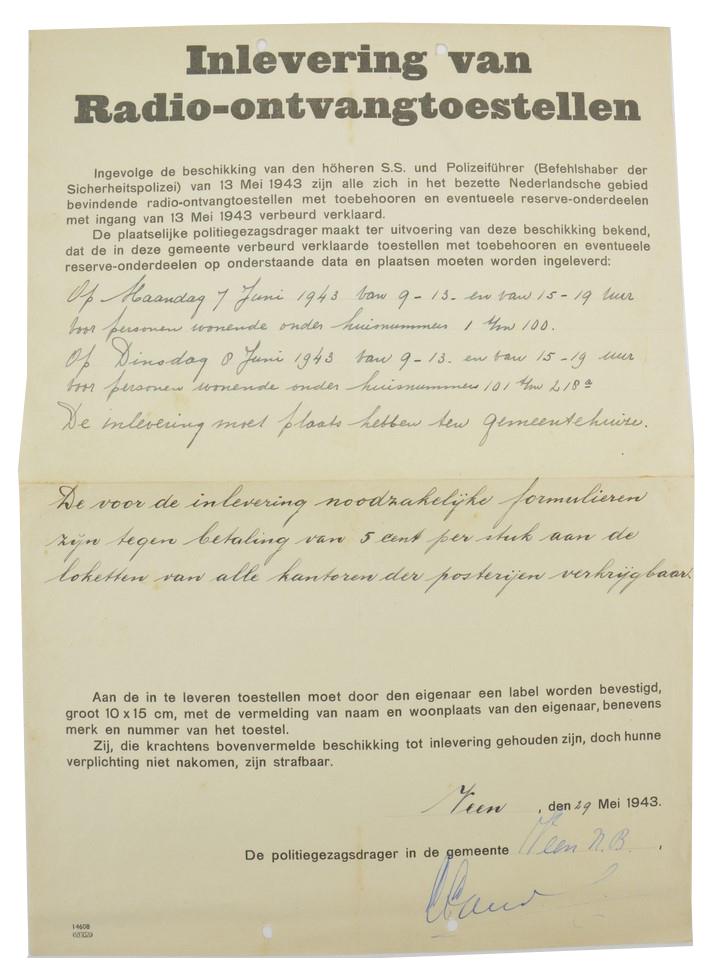 Inlevering van
Radio-ontvangtoestellen
Ingevolge de beschikking van den höheren S.S. und Polizeiführer (Befehlshaber der
Sicherheitspolizei) van 13 Mei 1943 zijn alle zich in het bezette Nederlandsche gebied
bevindende radio-ontvangtoestellen met toebehooren en eventueele reserve-onderdeelen
met ingang van 13 Mei 1943 verbeurd verklaard.
De plaatselijke politiegezagsdrager maakt ter uitvoering van deze beschikking bekend,
dat de in deze gemeente verbeurd verklaarde toestellen met toebehooren en eventueele
reserve-onderdeelen op onderstaande data en plaatsen moeten worden ingeleverd:
Op Maandag 7 Juni 1943 van 9-13. en van 15-19 uur
voor personen wonende onder huisnummers 1 t/m 100.
Op Dinsdag 8 Juni 1943 van 9-13. en van 15-19 uur
voor personen wonende onder huisnummers 101 t/m 218a
De inlevering moet plaats hebben ten gemeentehuize.
De voor de inlevering noodzakelijke formulieren
zijn tegen betaling van 5 cent per stuk aan de
loketten van alle kantoren der posterijen verkrijgbaar.
Aan de in te leveren toestellen moet door den eigenaar een label worden bevestigd,
groot 10 x 15 cm, met de vermelding van naam en woonplaats van den eigenaar, benevens
merk en nummer van het toestel.
Zij, die krachtens bovenvermelde beschikking tot inlevering gehouden zijn, doch hunne
verplichting niet nakomen, zijn strafbaar.
Veen, den 29 Mei 1943.
De politiegezagsdrager in de gemeente Veen N.B.
14608